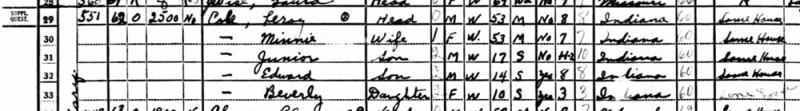 SUPPL. QUEST.
29 551 62 O 2500 No Cole, Leroy Head 0 M W 53 M No 8 8 Indiana 60 Same House
30 — Minnie Wife 1 F W 53 M No 7 7 Indiana 60 Same House
31 — Junior Son 2 M W 17 S No H-2 10 Indiana 60 Same House
32 — Edward Son 2 M W 14 S Yes 8 8 Indiana 60 Same House
33 — Beverly Daughter 2 F W 10 S Yes 3 3 Indiana 60 Same House